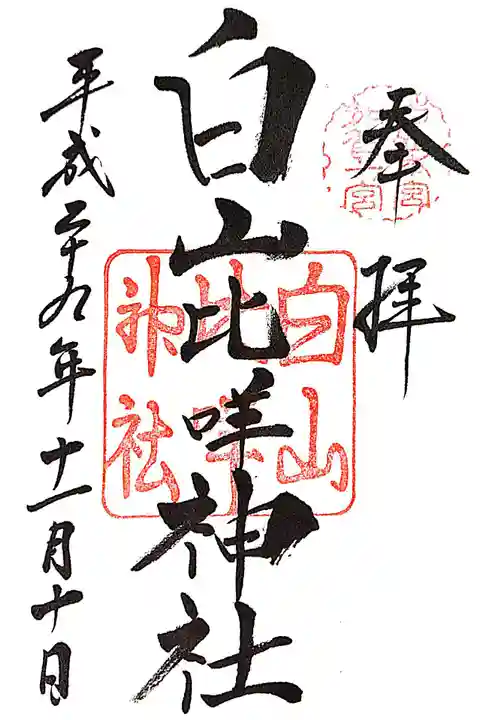 奉拝
白山比咩神社
白山
比咩
神社
平成二十九年十一月十日